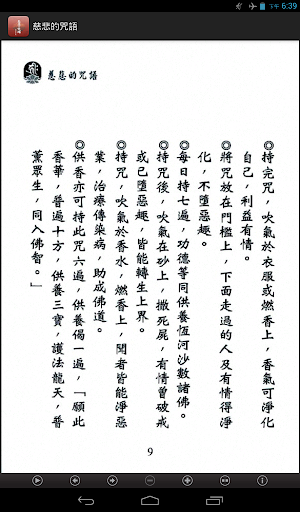 下午 6:39
慈悲的咒語
慈悲的咒語
◎持完咒，吹氣於衣服或燃香上，香氣可淨化
自己，利益有情。
◎將咒放在門檻上，下面走過的人及有情得淨
化，不墮惡趣。
◎每日持七遍，功德等同供養恆河沙數諸佛。
◎持咒後，吹氣在砂上，撒死屍，有情曾破戒
或已墮惡趣，皆能轉生上界。
◎持咒，吹氣於香水，燃香上，聞者皆能淨惡
業，治療傳染病，助成佛道。
◎供香亦可持此咒六遍，供養偈一遍，「願此
香華，普遍十方，供養三寶，護法龍天，普
薰眾生，同入佛智。」
9